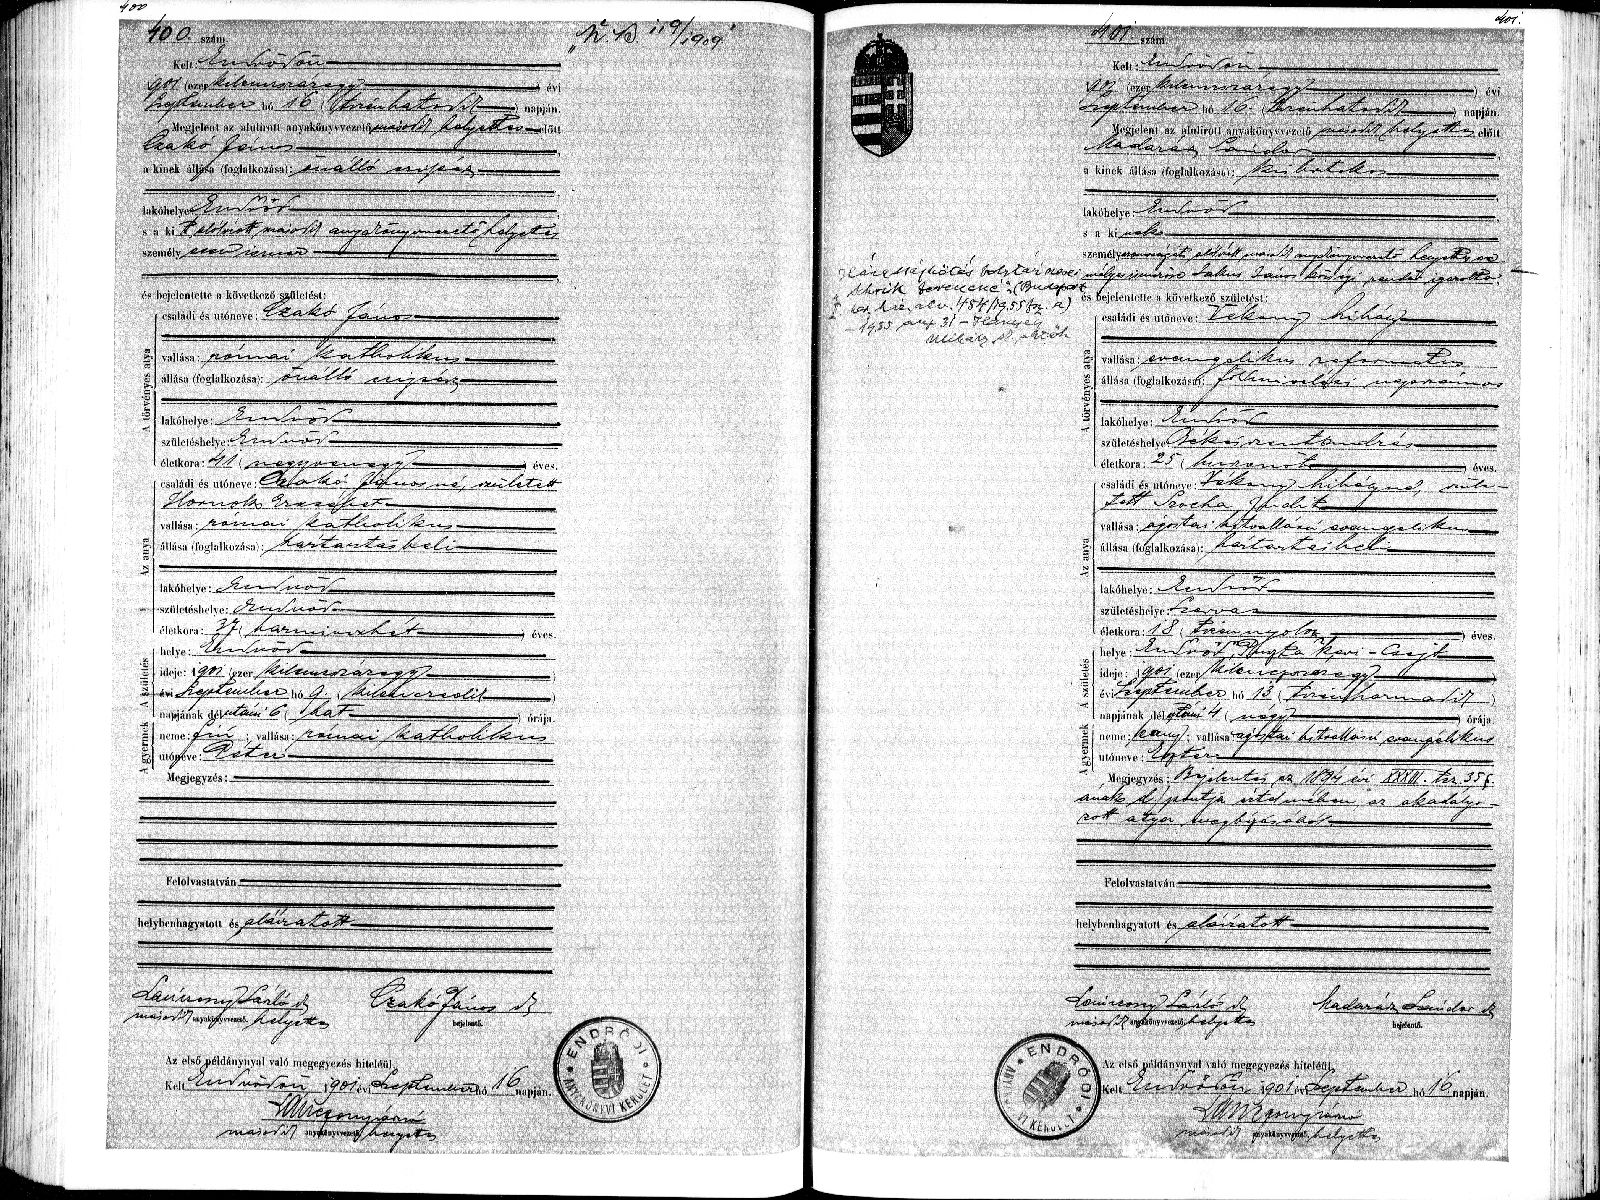 400
400. szám.
Kelt Endrődön
1901 (ezerkilenczszázegy) évi
Szeptember hó 16 (tizenhatodik) napján.
Megjelent az alulirott anyakönyvvezető második helyettes előtt
Czakó János
a kinek állása (foglalkozása): önálló
lakóhelye Endrőd
s a ki alulirott második anyakönyvvezető helyettes
személyesen ismer
és bejelentette a következő születést:
A törvényes atya
családi és utóneve: Czakó János
vallása: római katholikus
állása (foglalkozása): önálló
lakóhelye: Endrőd
születéshelye: Endrőd
életkora: 41 (negyvenegy) éves.
Az anya
családi és utóneve: Czakó Jánosné, született
Hornok Erzsébet
vallása: római katholikus
állása (foglalkozása): háztartásbeli
lakóhelye: Endrőd
születéshelye: Endrőd
életkora: 37 (harminczhét) éves.
A születés
helye: Endrőd
ideje: 1901 (ezer kilenczszázegy)
évi Szeptember hó 9. (kilenczedik)
napjának délutáni 6 (hat) órája.
A gyermek
neme: fiú; vallása: római katholikus
utóneve: Péter
Megjegyzés:
Felolvastatván
helybenhagyatott és aláiratott
Czakó János
második anyakönyvvezető helyettes
bejelentő.
Az első példánynyal való megegyezés hiteléül.
Kelt Endrődön 1901 évi Szeptember hó 16 napján.
második anyakönyvvezető helyettes
ENDRŐDI ANYAKÖNYVI KERÜLET
401.
401 szám
Kelt: Endrődön
1901 (ezer kilenczszázegy) évi
Szeptember hó 16. (tizenhatodik) napján.
Megjelent az alulirott anyakönyvvezető második helyettes előtt
Madarász Sándor
a kinek állása (foglalkozása): kubikos
lakóhelye Endrőd
s a kinek
személyazonosságát alulirott második anyakönyvvezető helyettes
és bejelentette a következő születést:
A törvényes atya
családi és utóneve: Vékony Mihály
vallása: evangelikus református
állása (foglalkozása): földmivelési napszámos
lakóhelye: Endrőd
születéshelye Békésszentandrás
életkora: 25 (huszonöt) éves.
Az anya
családi és utóneve: Vékony Mihályné, szüle-
tett Judit
vallása: ágostai hitvallású evangelikus
állása (foglalkozása): háztartásbeli
lakóhelye: Endrőd
születéshelye: Szarvas
életkora: 18 (tizennyolcz) éves.
A születés
helye: Endrőd, Puszta
ideje: 1901 (ezer kilenczszázegy)
évi Szeptember hó 13 (tizenharmadik)
napjának délutáni 4 (négy) órája
A gyermek
neme: leány; vallása ágostai hitvallású evangélikus
utóneve: Eszter
Megjegyzés: Bejelentés az 1894 évi XXXIII. tcz. 35 §.
ának d) pontja értelmében az akadályo-
zott atya megbizásából
Felolvastatván
helybenhagyatott és aláiratott
Madarász Sándor
második anyakönyvvezető helyettes
bejelentő.
Az első példánynyal való megegyezés hiteléül.
Kelt Endrődön 1901 évi szeptember hó 16 napján.
második anyakönyvvezető helyettes
ENDRŐDI ANYAKÖNYVI KERÜLET